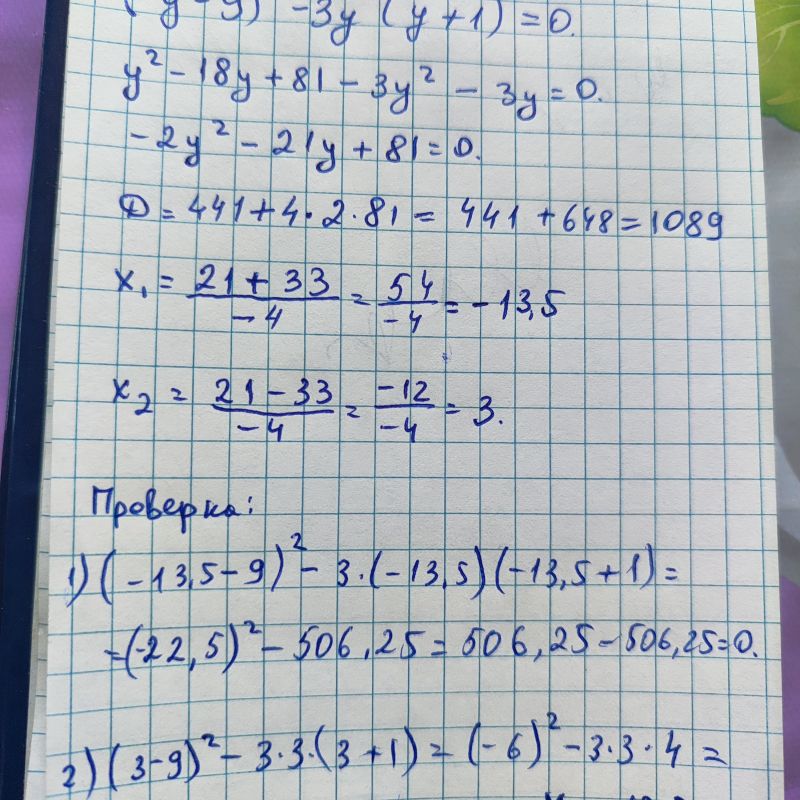 (y-9)² -3y (y+1) = 0.
y² - 18y + 81 - 3y² - 3y = 0.
-2y² - 21y + 81 = 0.
D = 441 + 4 · 2 · 81 = 441 + 648 = 1089
x₁ = (21 + 33)/(-4) = 54/(-4) = -13,5
x₂ = (21 - 33)/(-4) = (-12)/(-4) = 3.
Проверка:
1) (-13,5 - 9)² - 3 · (-13,5) (-13,5 + 1) =
= (-22,5)² - 506,25 = 506,25 - 506,25 = 0.
2) (3-9)² - 3 · 3 · (3 + 1) = (-6)² - 3 · 3 · 4 =